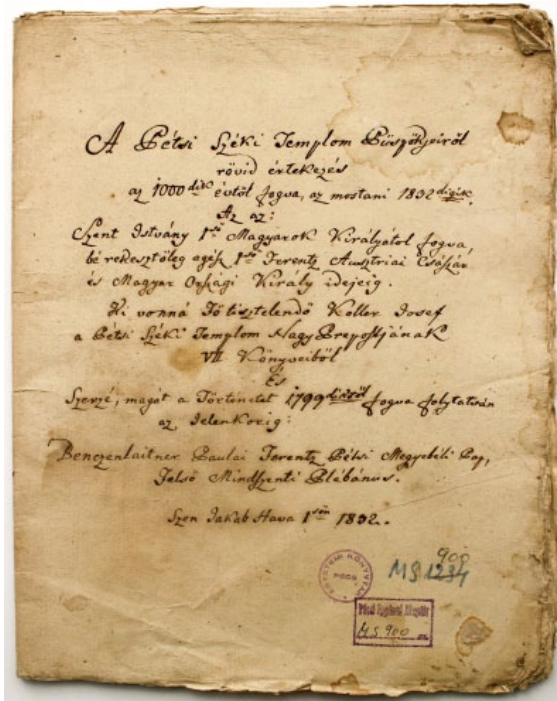 A Pétsi Széki Templom Püspökjeiről
rövid értekezés
az 1000dik évtől fogva, az mostani 1832digik.
Az az:
Szent Istvány 1ső Magyarok Királyától fogva,
bé rekesztőleg egész 1ső Ferentz Austriai Császár
és Magyar Országi Király idejeig.
Ki vonná Fő tisztelendő Koller Josef
a Pétsi Széki Templom Nagy Prepostjának
VII Könyveiből
És
Szerzé, magát a Történetet 1799diktől fogva folytatván
az Jelenkorig:
Benczenlaitner Paulai Ferentz Pétsi Megyebéli Pap,
Felső Mindszenti Plébánus.
Szen Jakab Hava 1sőn 1832.
EGYETEMI KÖNYVTÁR
PÉCS
900
MS 1234
Pécsi Egyetemi Könyvtár
MS. 900 sz.